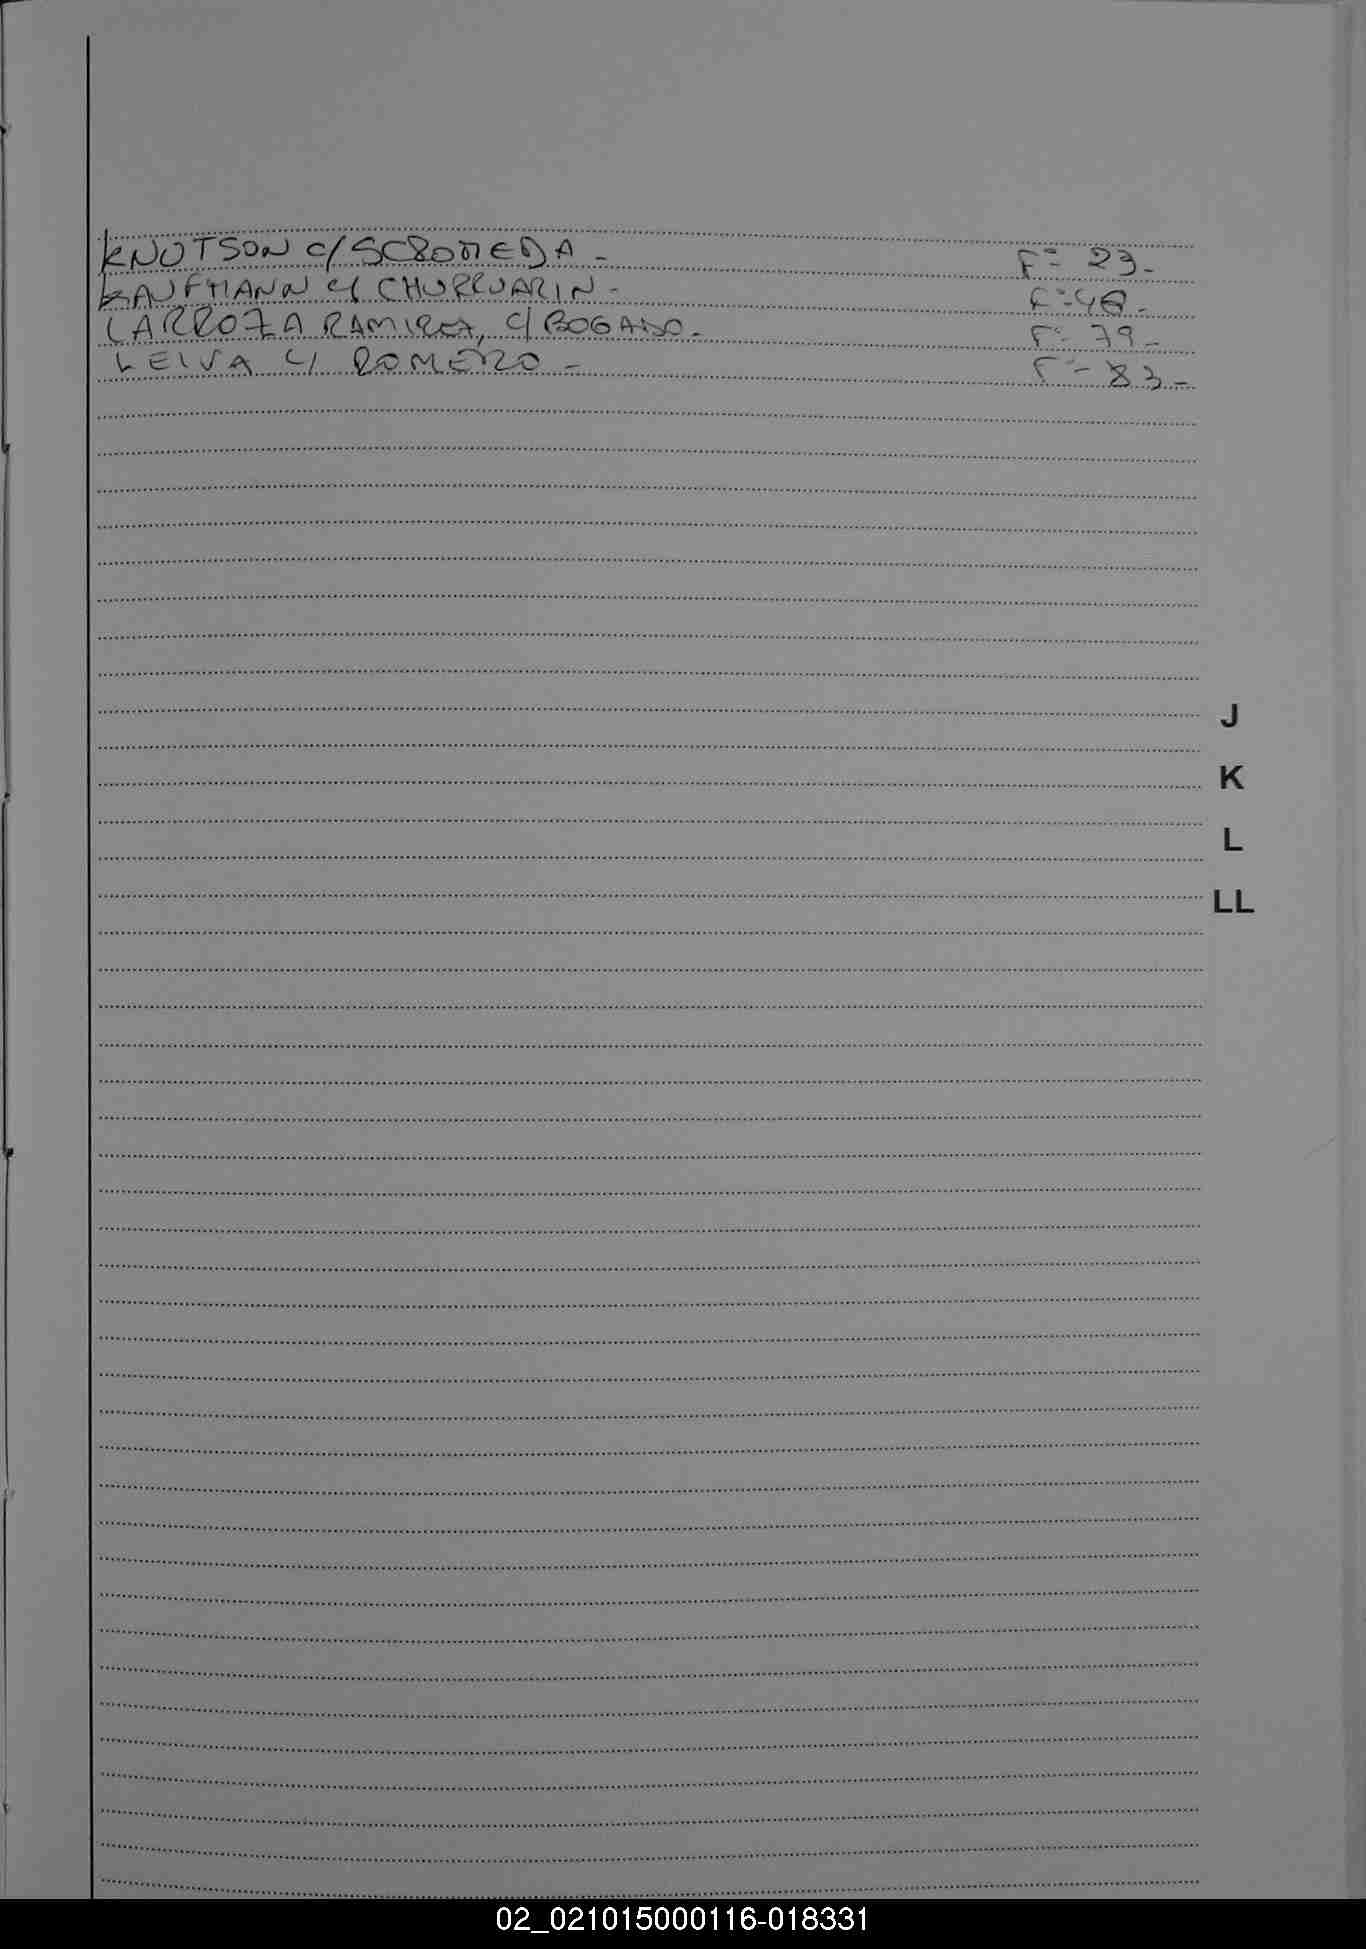 KNUTSON c/ SCROMEDA - F° 23-
KAUFMANN c/ CHURRUARIN - F° 48-
LARROZA RAMIREZ, c/ BOGADO - F° 79-
LEIVA c/ ROMERO - F° 83-
J
K
L
LL
02_021015000116-018331